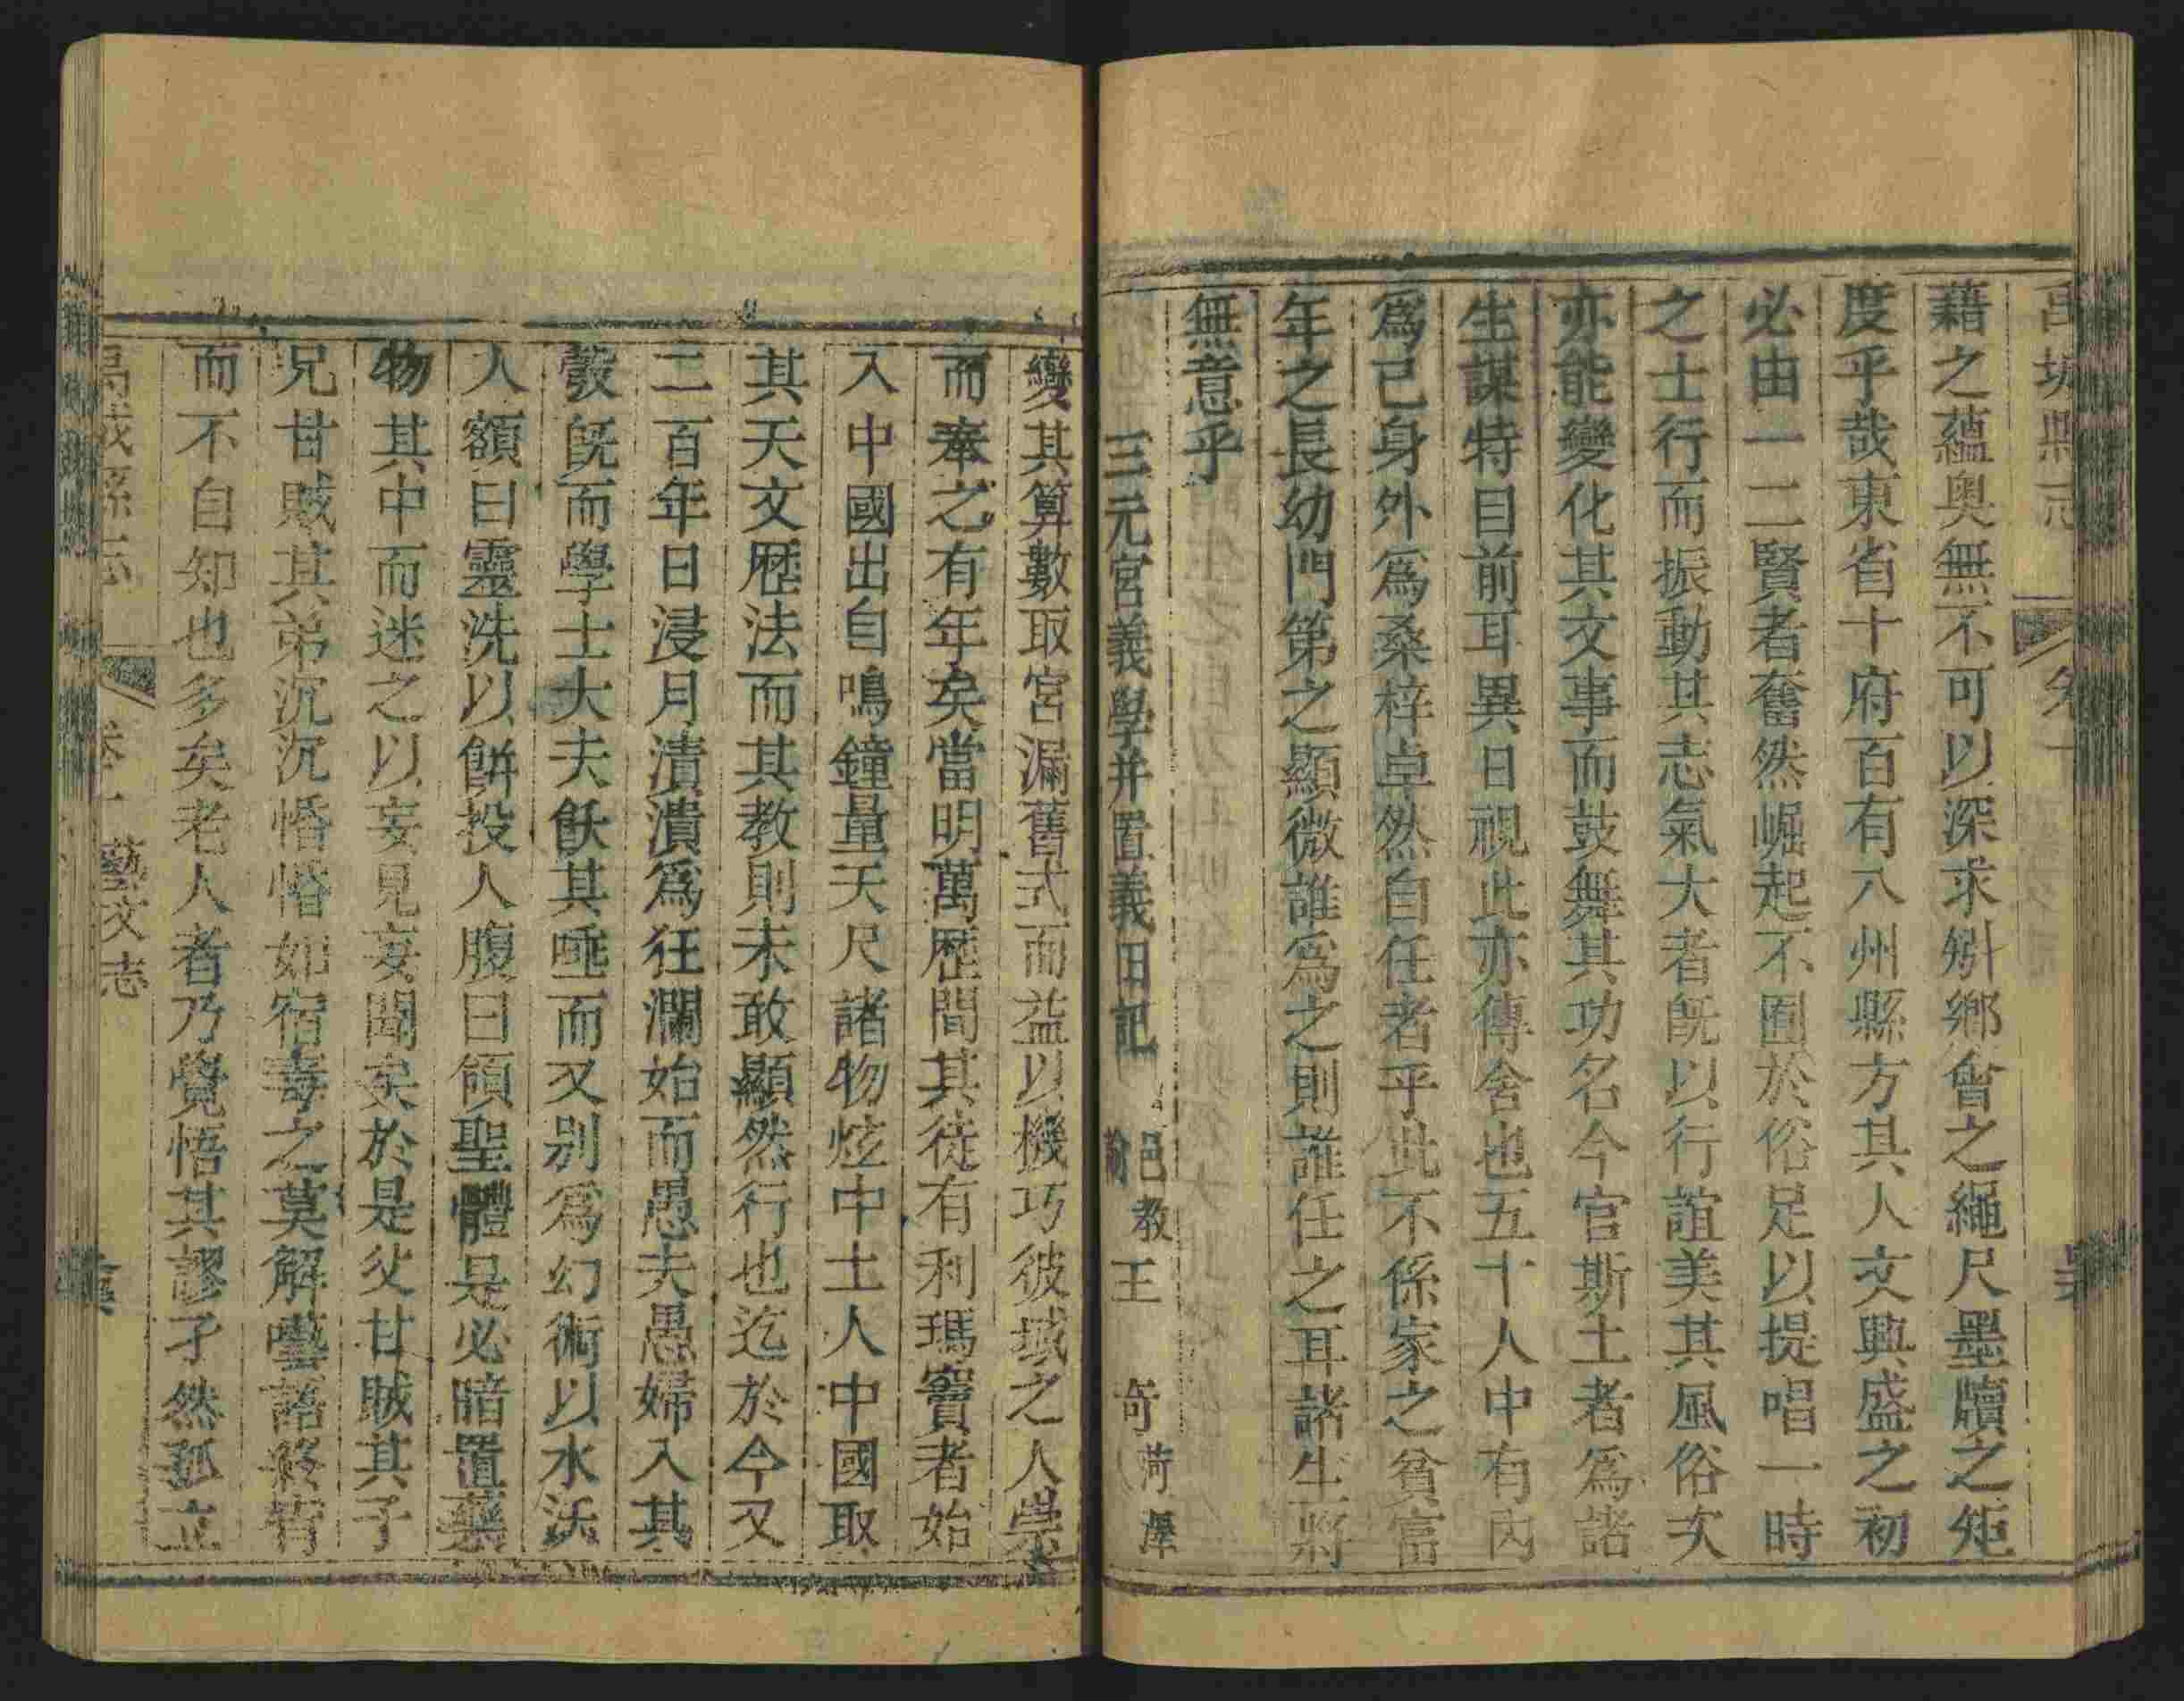 禹城縣志
卷十
藉之蘊奧無不可以深求矧鄉會之繩尺墨牘之矩
度乎哉東省十府百有八州縣方其人文興盛之初
必由一二賢者奮然崛起不囿於俗足以提唱一時
之士行而振動其志氣大者旣以行誼美其風俗次
亦能變化其文事而鼓舞其功名今官斯土者爲諸
生謀特目前耳異日視此亦傳舍也五十人中有內
爲己身外爲桑梓卓然自任者乎此不係家之貧富
年之長幼門第之顯微誰爲之則誰任之耳諸生將
無意乎
三元宮義學并置義田記 邑教諭 王奇 菏澤
變其算數取宮漏舊式而益以機巧彼域之人崇
而奉之有年矣當明萬歷間其徒有利瑪竇者始
入中國出自鳴鐘量天尺諸物炫中土人中國取
其天文歷法而其教則未敢顯然行也迄於今又
二百年日浸月漬潰爲狂瀾始而愚夫愚婦入其
彀旣而學士大夫飫其唾而又別爲幻術以水沃
人額曰靈洗以餅投人腹曰領聖體是必暗置藥
物其中而迷之以妄見妄聞矣於是父甘賊其子
兄甘賊其弟沉沉惛惛如宿毒之莫解囈語終宵
而不自知也多矣老人者乃覺悟其謬孑然孤立
禹城縣志
藝文志